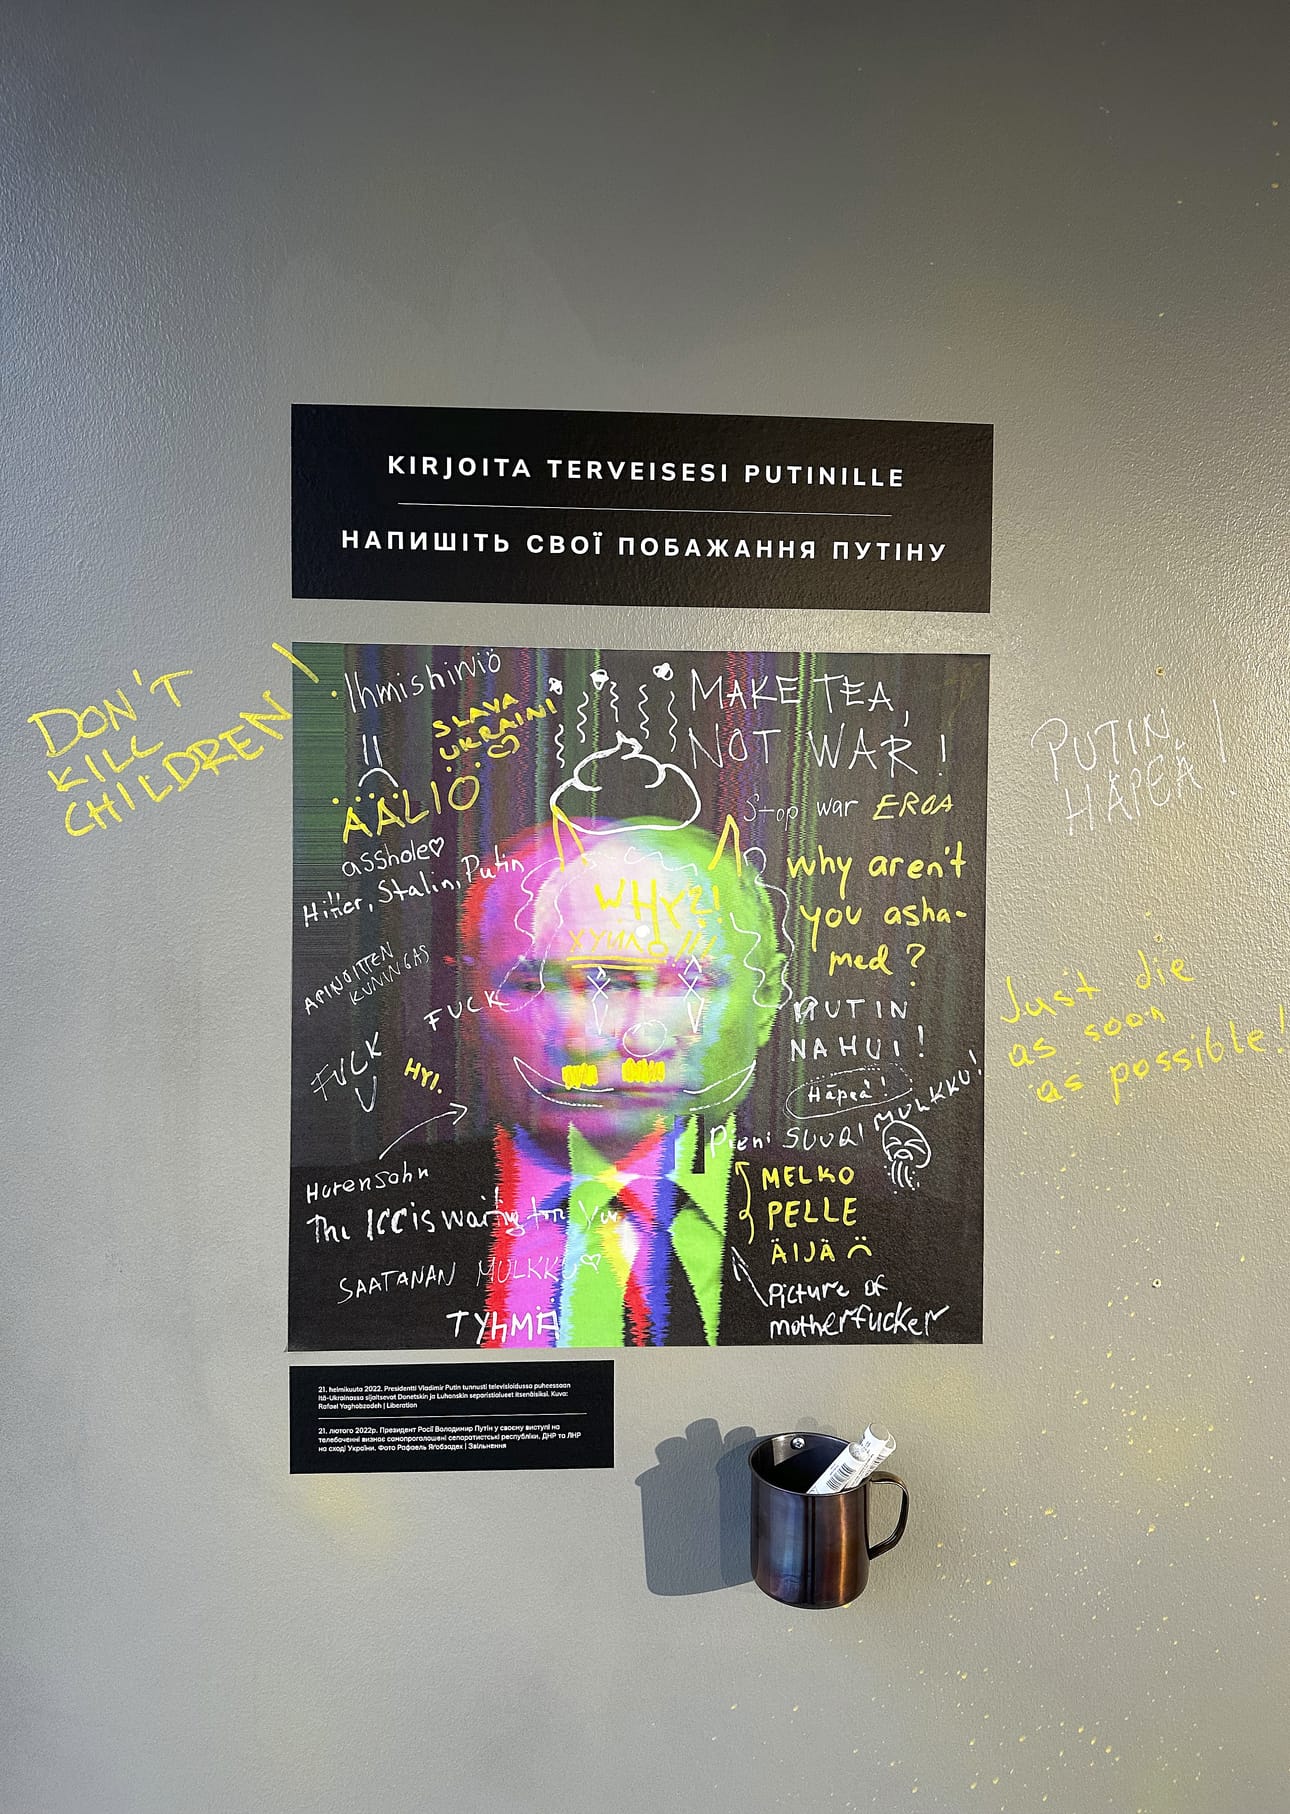 KIRJOITA TERVEISESI PUTINILLE
НАПИШІТЬ СВОЇ ПОБАЖАННЯ ПУТІНУ
DON'T
KILL
CHILDREN!
Ihmishirviö
SLAVA
UKRAINI
ÄÄLIÖ
asshole
Hitler, Stalin, Putin
APINOITTEN
KUNINGAS
FUCK
FUCK
U
HYI.
Hurensohn
The ICC is waiting for you
SAATANAN MULKKU
TYHMÄ
WHY?!
ХУИЛО!!!
MAKE TEA,
NOT WAR!
Stop war EROA
why aren't
you asha-
med?
PUTIN
NAHUI!
Häpeä!
MULKKU!
Pieni SUURI
MELKO
PELLE
ÄIJÄ
Picture of
motherfucker
PUTIN,
HÄPEÄ!
Just die
as soon
as possible!
21. helmikuuta 2022. Presidentti Vladimir Putin tunnusti televisioidussa puheessaan
Itä-Ukrainassa sijaitsevat Donetskin ja Luhanskin separatistialueet itsenäisiksi. Kuva:
Rafael Yaghobzadeh | Liberation
21. лютого 2022р. Президент Росії Володимир Путін у своєму виступі на
телебаченні визнає самопроголошені сепаратистські республіки, ДНР та ЛНР
на сході України. Фото Рафаель Ягобзадех | Звільнення